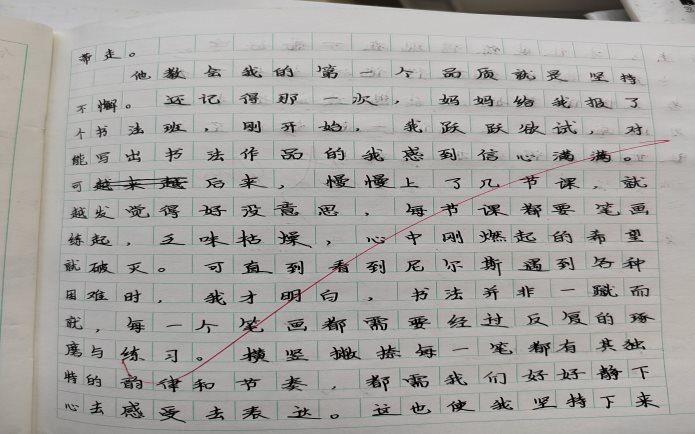 带走。
他教会我的第一个品质就是坚持
不懈。还记得那一次，妈妈给我报了
个书法班，刚开始，我跃跃欲试，对
能写出书法作品的我感到信心满满。
可越来越后来，慢慢上了几节课，就
越发觉得好没意思，每节课都要笔画
练起，乏味枯燥，心中刚燃起的希望
就破灭。可直到看到尼尔斯遇到各种
困难时，我才明白，书法并非一蹴而
就，每一个笔画都需要经过反复的琢
磨与练习。横竖撇捺每一笔都有其独
特的韵律和节奏，都需我们好好静下
心去感受去表达。这也使我坚持下来